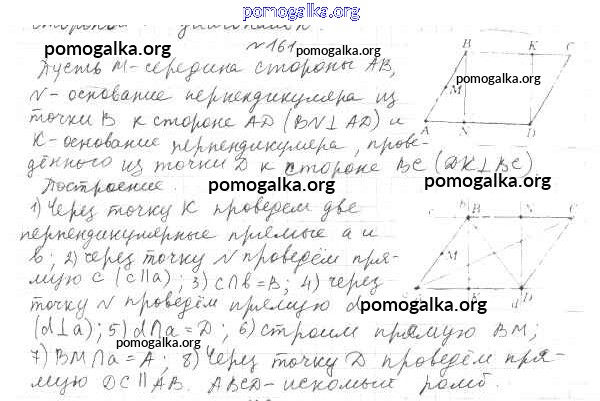 pomogalka.org
№161
Пусть M-середина стороны AB,
N-основание перпендикуляра из
точки B к стороне AD (BN⊥AD) и
K-основание перпендикуляра, прове-
дённого из точки D к стороне BC (DK⊥BC)
Построение.
1) Через точку K проведём две
перпендикулярные прямые a и
b; 2) через точку N проведём пря-
мую c (c∥a); 3) c∩b=B; 4) через
точку N проведём прямую d
(d⊥a); 5) d∩a=D; 6) Строим прямую BM;
7) BM∩a=A; 8) Через точку D проведём пря-
мую DC∥AB. ABCD-искомый ромб.
B K C
M
A N D
pomogalka.org
pomogalka.org
pomogalka.org
pomogalka.org
pomogalka.org
pomogalka.org
pomogalka.org
B N C
M